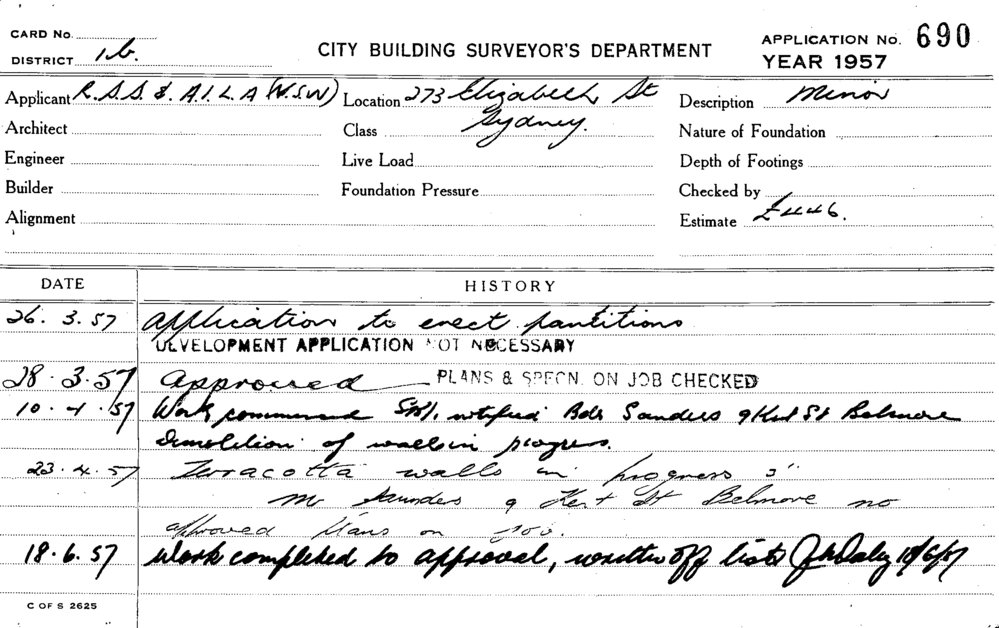 CARD No.
DISTRICT 1b.
CITY BUILDING SURVEYOR'S DEPARTMENT
APPLICATION No. 690
YEAR 1957
Applicant R.S.S. & A.I.L.A (N.S.W) Location 273 Elizabeth St Description Minor
Architect Class Sydney. Nature of Foundation
Engineer Live Load Depth of Footings
Builder Foundation Pressure Checked by
Alignment Estimate £446.
DATE HISTORY
26. 3. 57 Application to erect partitions
DEVELOPMENT APPLICATION NOT NECESSARY
28. 3. 57 Approved PLANS & SPECN. ON JOB CHECKED
10. 4. 57 Work commenced notified Bdr Sanders 9 Kent St Belmore
Demolition of walls in progress.
23. 4. 57 Terracotta walls in progress
Mr Saunders 9 Kent St Belmore no
approved plans on job.
18. 6. 57 Work completed to approval, written off lists 18/6/57
C OF S 2625